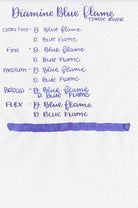 Diamine Blue Flame
TOMOE RIVER
EXTRA FINE - D. Blue flame
D. BLUE FLAME
FINE - D. Blue flame
D. BLUE FLAME
MEDIUM - D. Blue flame
D. BLUE FLAME
BROAD - D. Blue flame
D. BLUE FLAME
FLEX - D. Blue flame
D. BLUE FLAME